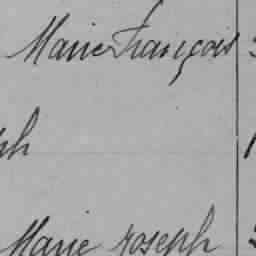 Marie François
ph
Marie Joseph